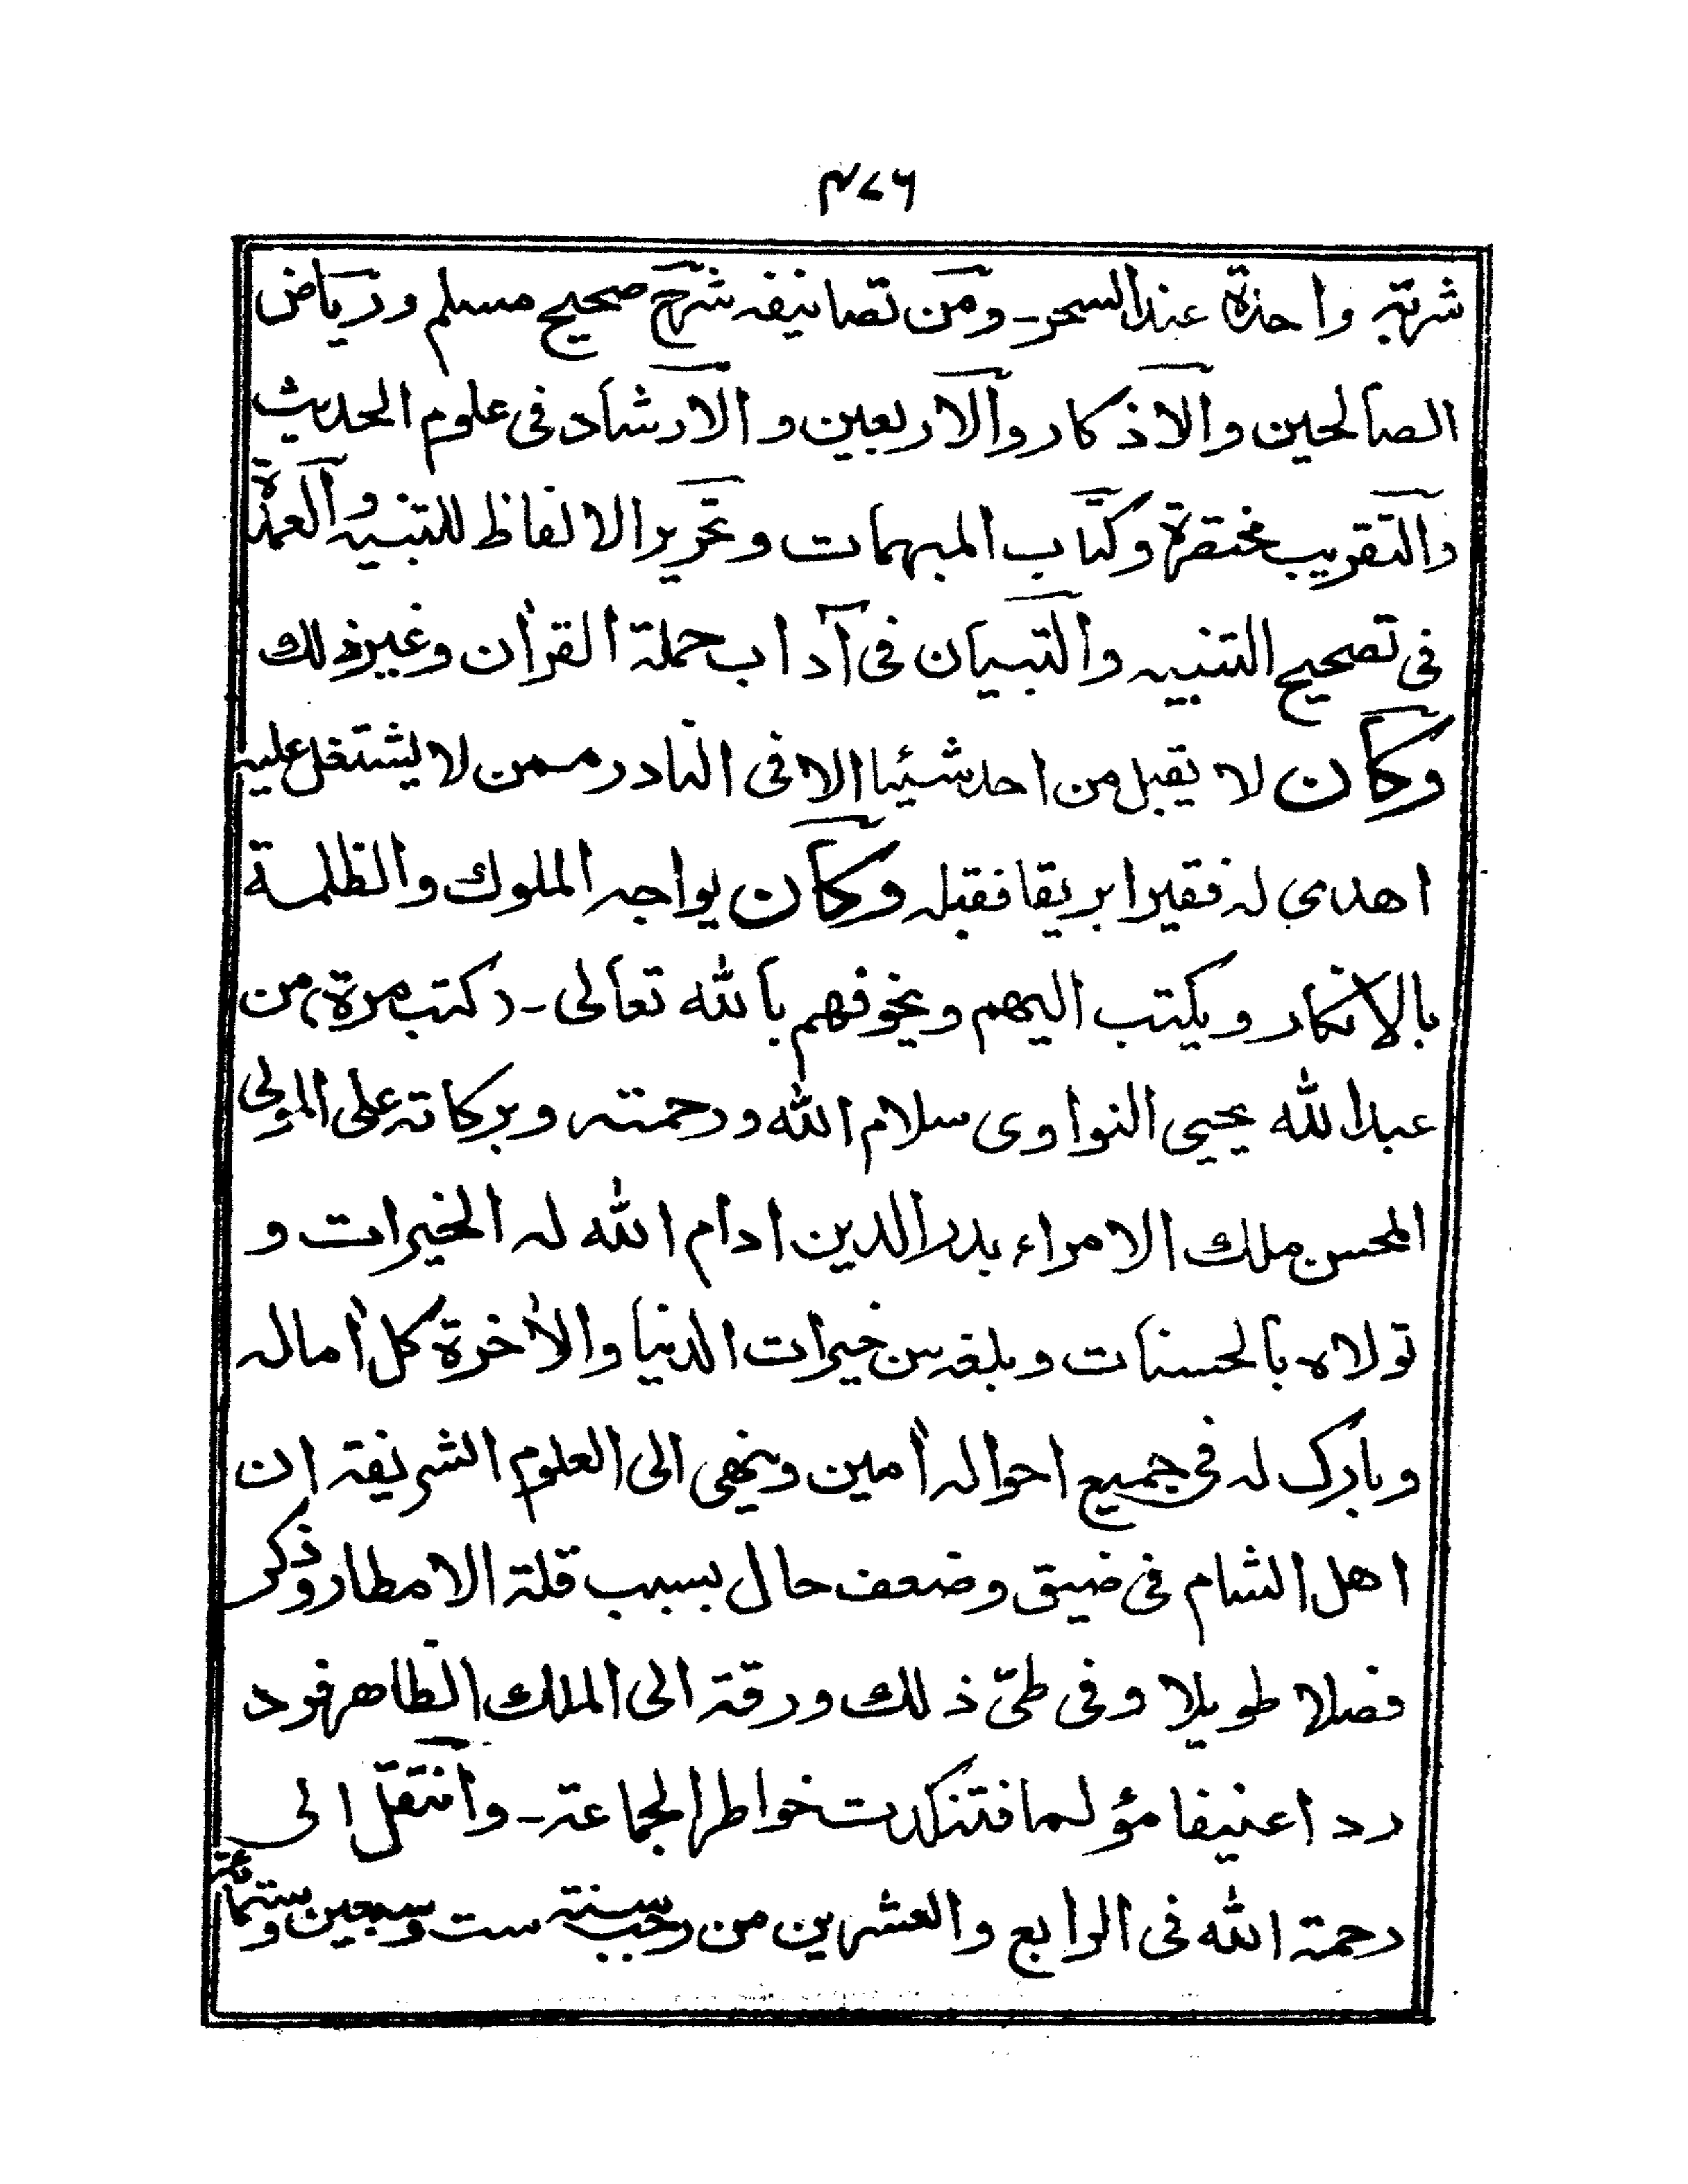 ۴۷۶
شربة واحدة عند السحر۔ ومن تصانيفه شرح صحيح مسلم ورياض
الصالحين والاذكار والاربعين والارشاد فى علوم الحديث
والتقريب مختصرة وكتاب المبهمات وتحرير الالفاظ للتنبيه والعمدة
فى تصحيح التنبيه والتبيان فى آداب حملة القرأن وغير ذلك
وكان لا يقبل من احد شيئا الا فى النادر ممن لا يشتغل عليه
اهدى له فقير ابريقا فقبله وكان يواجه الملوك والظلمة
بالانكار ويكتب اليهم ويخوفهم بالله تعالى۔ (كتب مرة) من
عبد الله يحيى النواوى سلام الله ورحمته وبركاته على المولى
المحسن ملك الامراء بدر الدين ادام الله له الخيرات و
تولاه بالحسنات وبلغه من خيرات الدنيا والأخرة كل أماله
وبارك له فى جميع احواله أمين وينهى الى العلوم الشريفة ان
اهل الشام فى ضيق وضعف حال بسبب قلة الامطار وذكر
فصلا طويلا وفى طىّ ذلك ورقة الى الملك الظاهر فرد
ردا عنيفا مؤلما فتنكدت خواطر الجماعة۔ وانتقل الى
رحمة الله فى الرابع والعشرين من رجب سنة ست وسبعين وستمائة